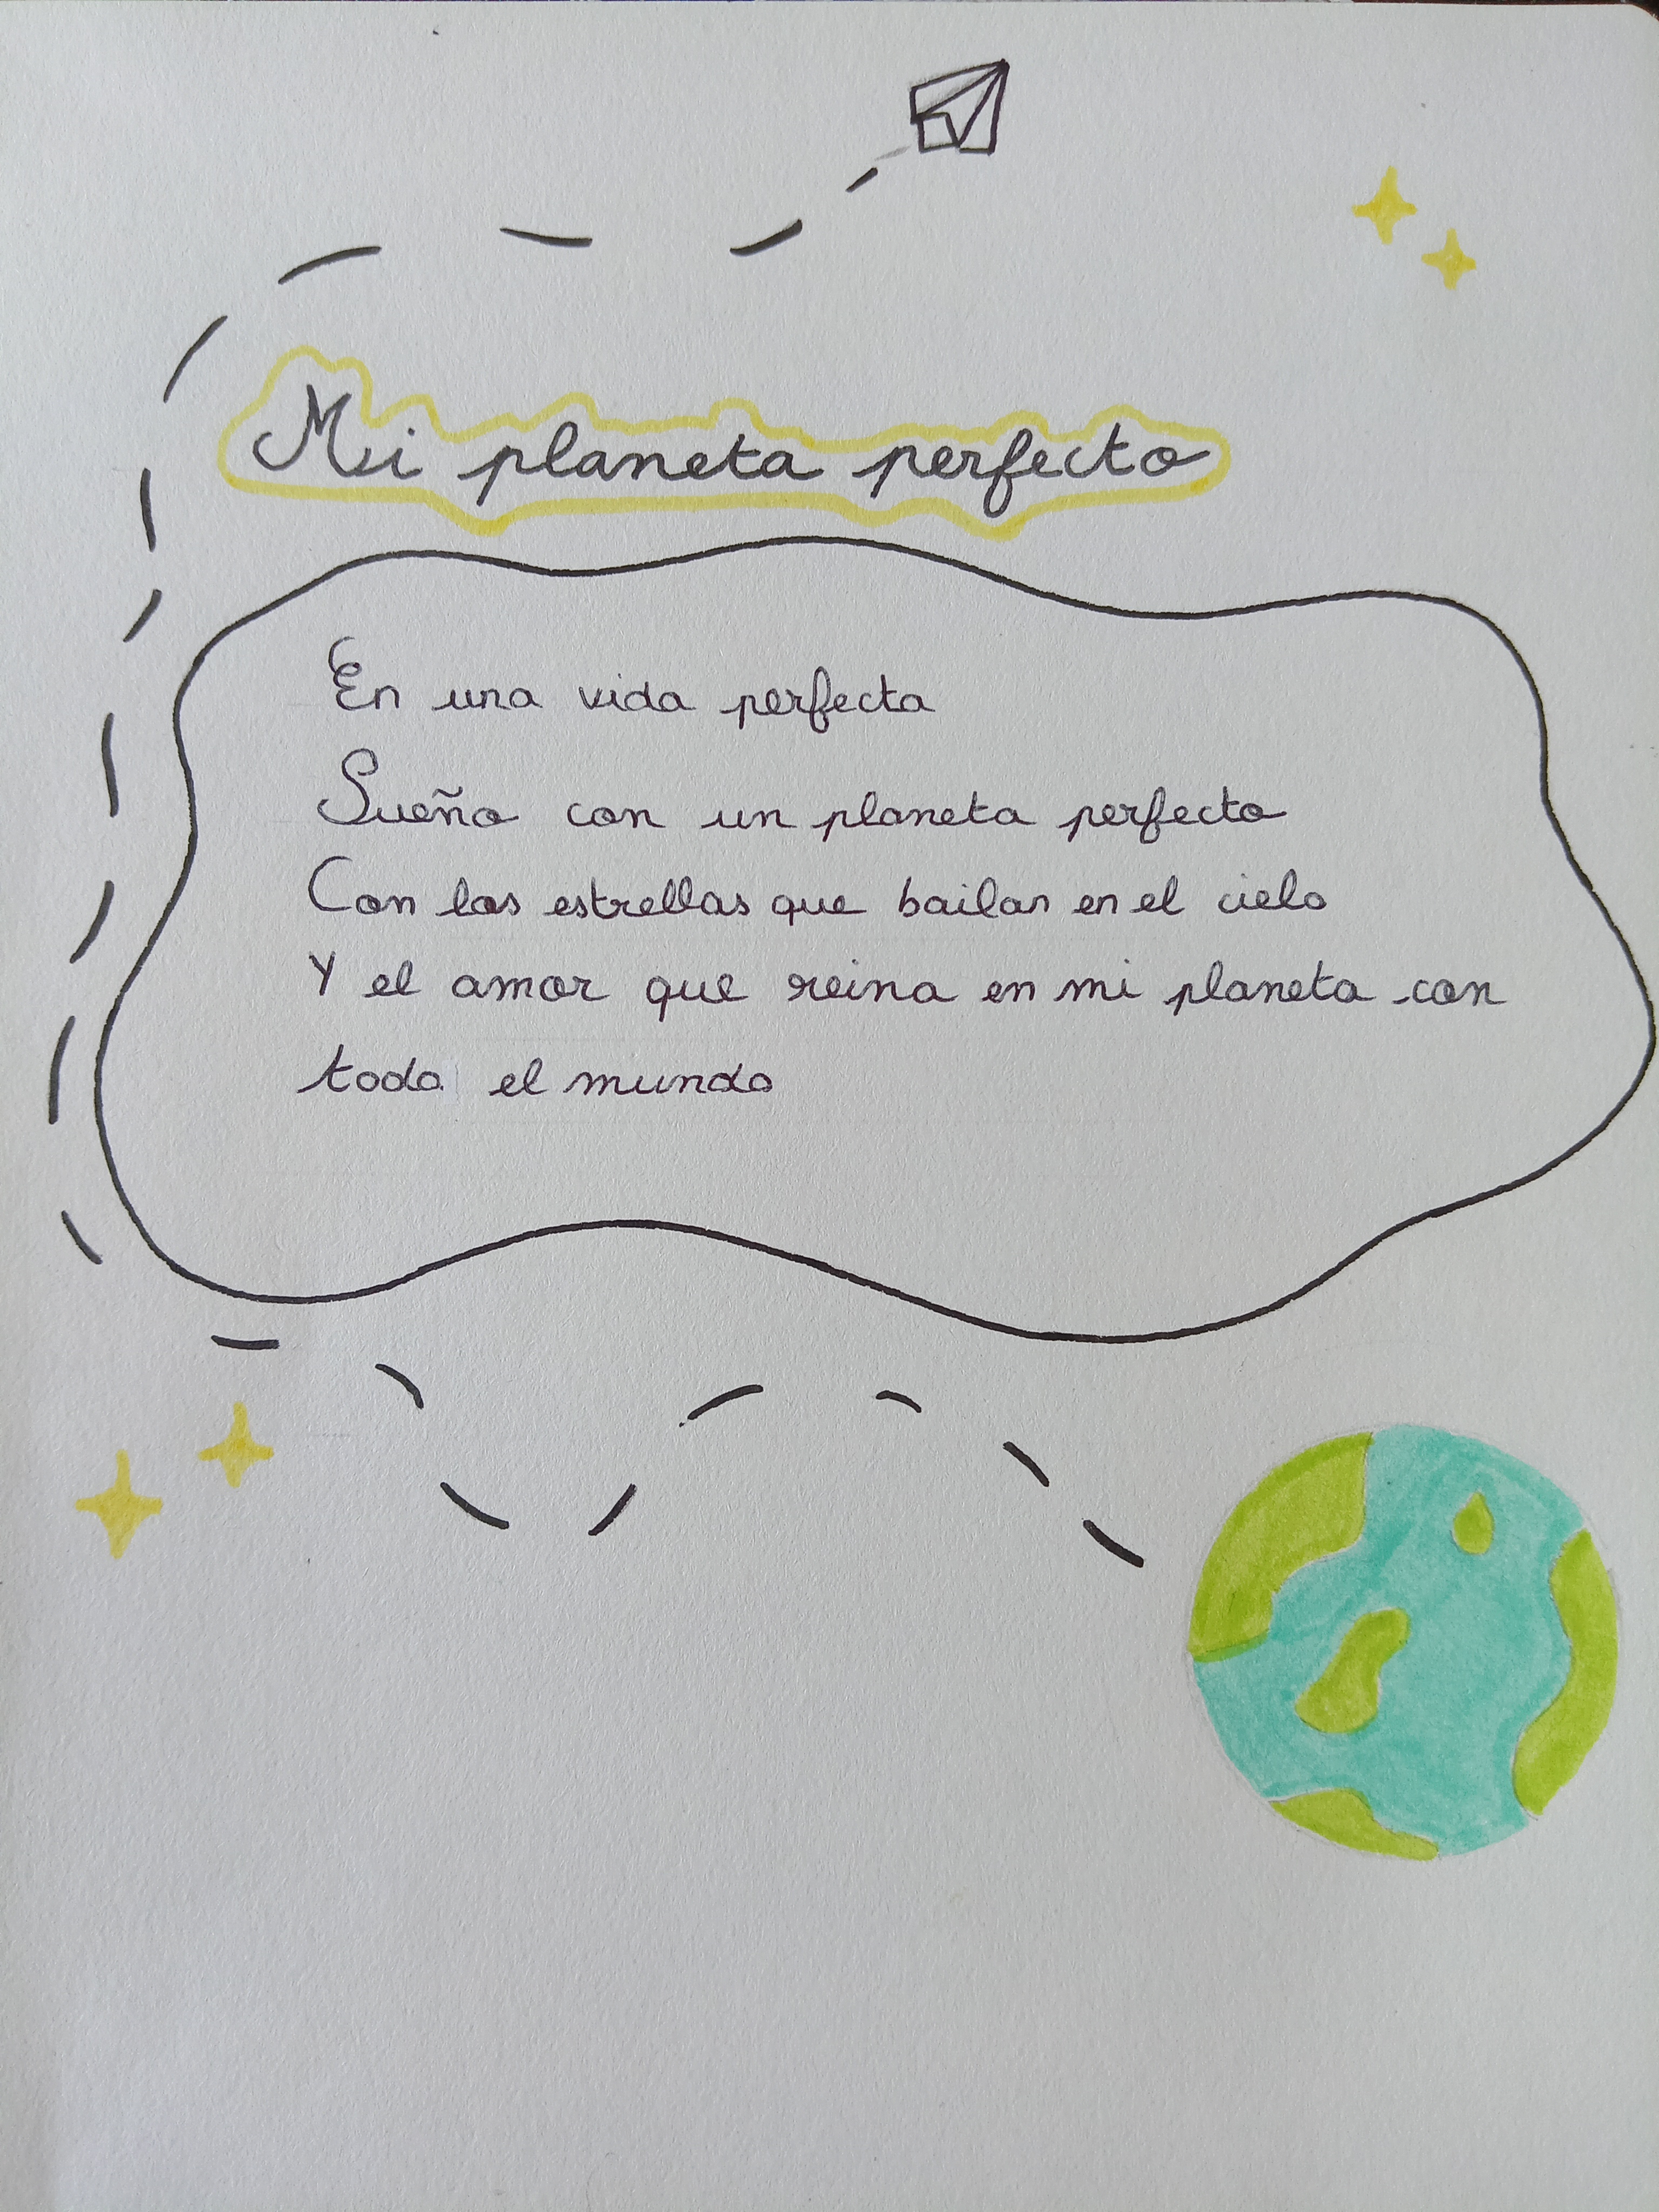 Mi planeta perfecto
En una vida perfecta
Sueño con un planeta perfecto
Con las estrellas que bailan en el cielo
Y el amor que reina en mi planeta con
todo el mundo